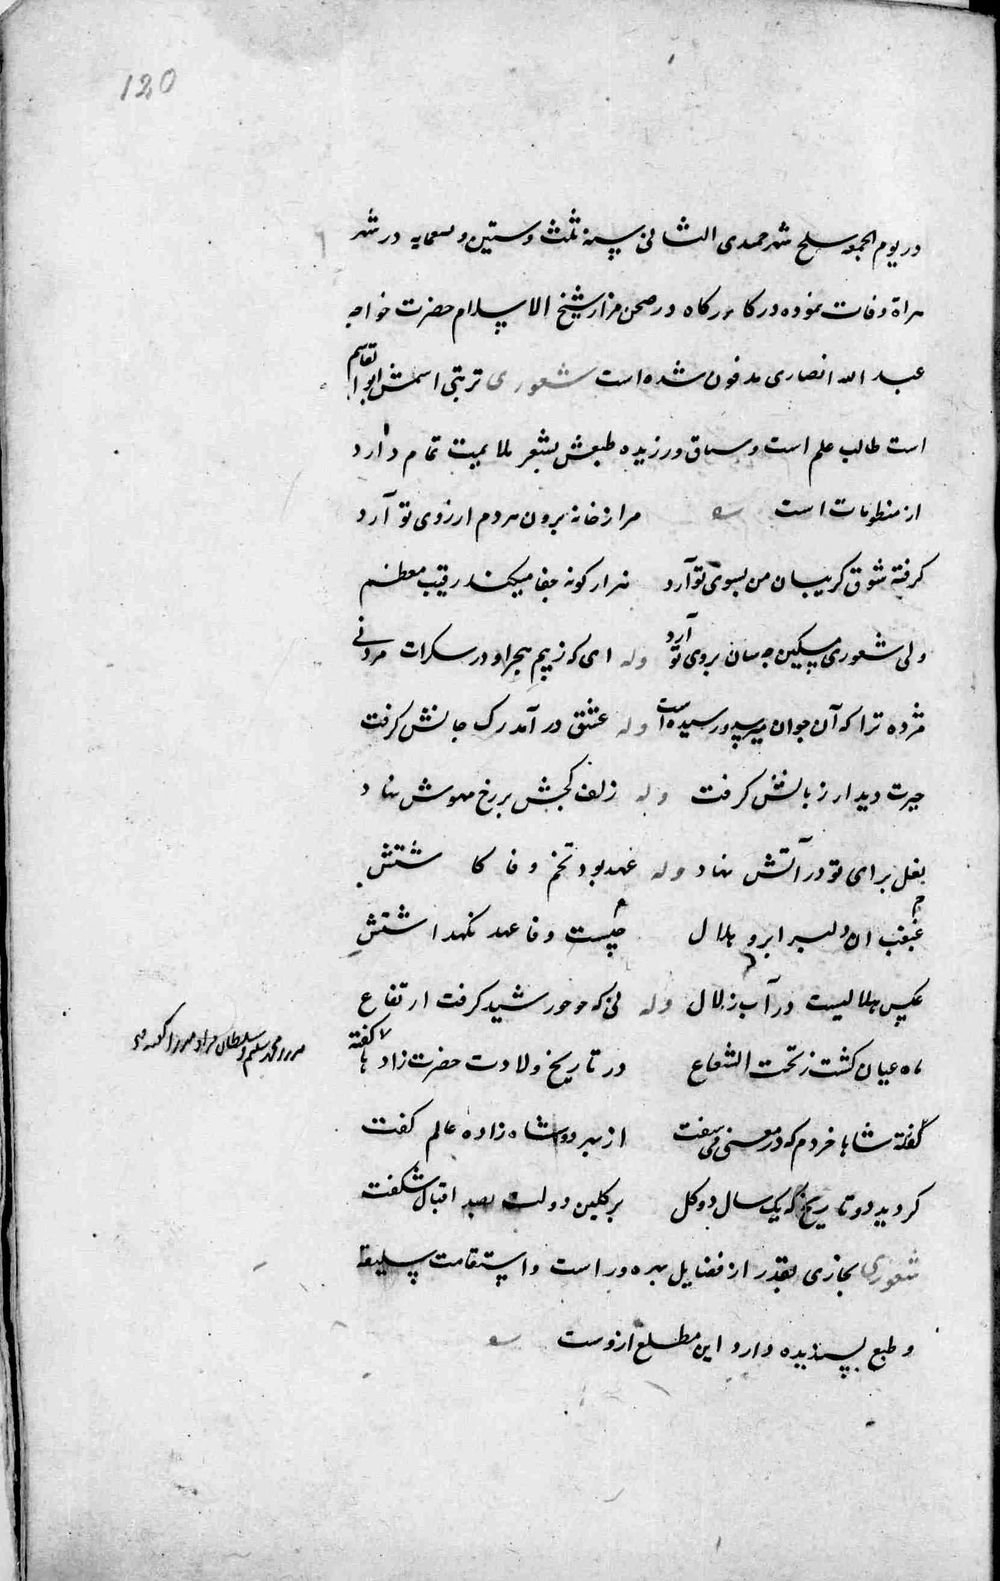 120
در یوم الجمعه سلخ شهر جمدی الثانی سنه ثلث و ستین و تسعمایه در شهر
هراة وفات نموده در کازرکاه در صحن مزار شیخ الاسلام حضرت خواجه
عبد الله انصاری مدفون شده است شعوری تربتی اسمش ابو القاسم
است طالب علم است و سیاق ورزیده طبعش بشعر ملایمیت تمام دارد
از منظومات است مرا ز خانه برون هر دم ارزوی تو آرد
کرفته شوق کریبان من بسوی تو آرد هزار کونه جفا میکند رقیب معظم
ولی شعوری مسکین چه سان بروی تو آرد وله ای که ز بیم هجر او در سکرات مردنی
مژده ترا که آن جوان بر سر رسیده است وله عشق در آمد رک جانش کرفت
حیرت دیدار زبانش کرفت وله زلف کجش بر رخ مهوش نهاد
نعل برای تو در آتش نهاد وله عهد بود تخم وفا کاشتش
غبغب ان دلبر ابرو هلال م چیست وفا عهد نکهداشتش
عکس هلالیست در آب زلال وله نی که چو خورشید کرفت ارتفاع
ماه عیان کشت ز تحت الشعاع در تاریخ ولادت حضرت زادها کفته
محمد سلیم و سلطان مراد میرزا
کفته شاها خردم که در معنی می سفت از بهر دو شاه زاده عالم کفت
کردید دو تاریخ که یک سال دو کل بر کلبن دولت بصد اقبال شکفت
شعوری بخاری بقدر از فضایل بهره ور است و استقامت سلیقه
و طبع پسندیده دارد این مطلع ازوست